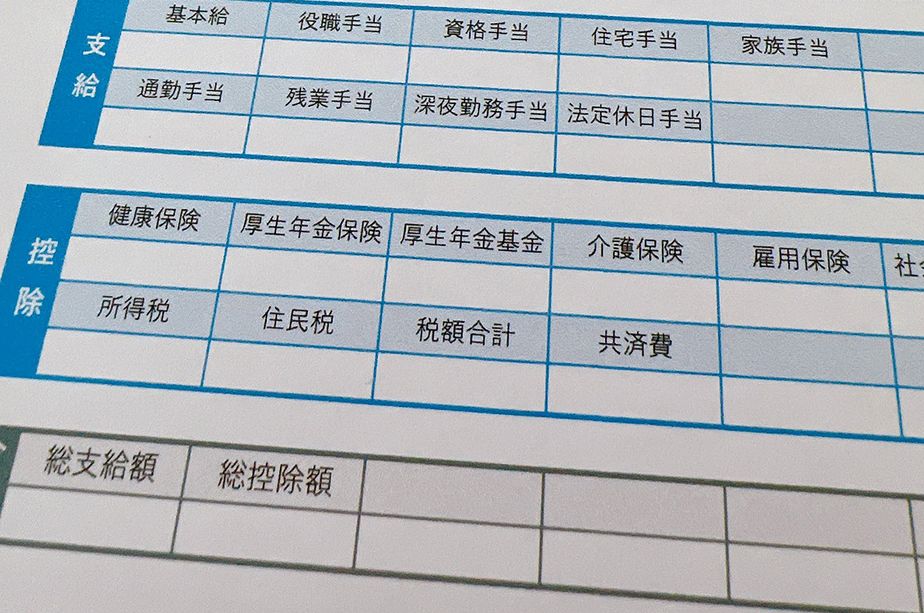 支給
基本給 役職手当 資格手当 住宅手当 家族手当
通勤手当 残業手当 深夜勤務手当 法定休日手当
控除
健康保険 厚生年金保険 厚生年金基金 介護保険 雇用保険 社
所得税 住民税 税額合計 共済費
総支給額 総控除額